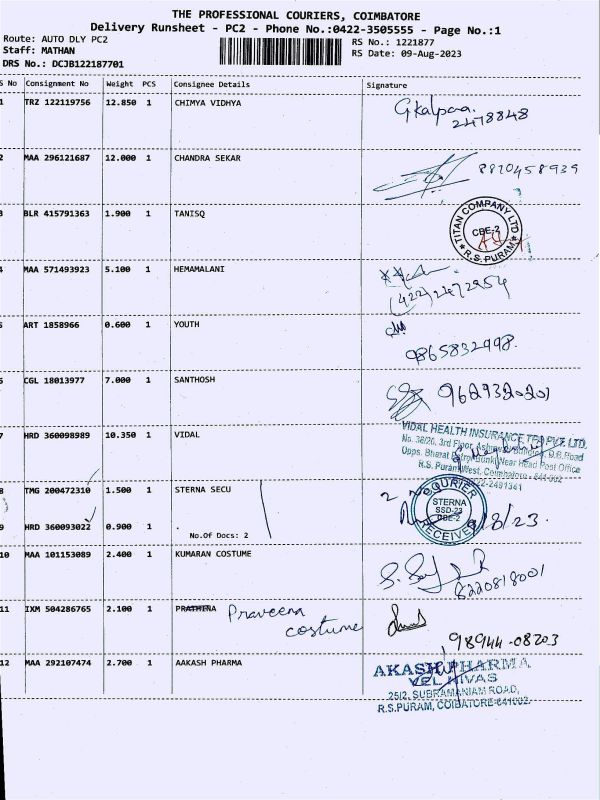 THE PROFESSIONAL COURIERS, COIMBATORE
Delivery Runsheet - PC2 - Phone No.:0422-3505555 - Page No.:1
Route: AUTO DLY PC2
Staff: MATHAN
DRS No.: DCJB122187701
RS No.: 1221877
RS Date: 09-Aug-2023
S No Consignment No Weight PCS Consignee Details Signature
1 TRZ 122119756 12.850 1 CHIMYA VIDHYA
Gkalpaa.
2478848
2 MAA 296121687 12.000 1 CHANDRA SEKAR
8870458939
3 BLR 415791363 1.900 1 TANISQ
TITAN COMPANY LTD
CBE-2
R.S.PURAM
4 MAA 571493923 5.100 1 HEMAMALANI
(422) 2472954
5 ART 1858966 0.600 1 YOUTH
9865832998.
6 CGL 18013977 7.000 1 SANTHOSH
9629320201
7 HRD 360098989 10.350 1 VIDAL
VIDAL HEALTH INSURANCE TPA PVT. LTD.
No. 38/26, 3rd Floor, Building, D.B.Road
Opps. Bharat Petrol Bunk, Near Head Post Office
R.S. Puram West, Coimbatore - 641 002
8 TMG 200472310 1.500 1 STERNA SECU
COURIER
STERNA
SSD-23
CBE-2
RECEIVED
9/8/23.
9 HRD 360093022 0.900 1 .
No.Of Docs: 2
10 MAA 101153089 2.400 1 KUMARAN COSTUME
8220818001
11 IXM 504286765 2.100 1 PRATHINA Praveena
costume
98944-08203
12 MAA 292107474 2.700 1 AAKASH PHARMA
AKASH PHARMA
VEL NIVAS
25/2, SUBRAMANIAM ROAD,
R.S.PURAM, COIBATORE-641002.